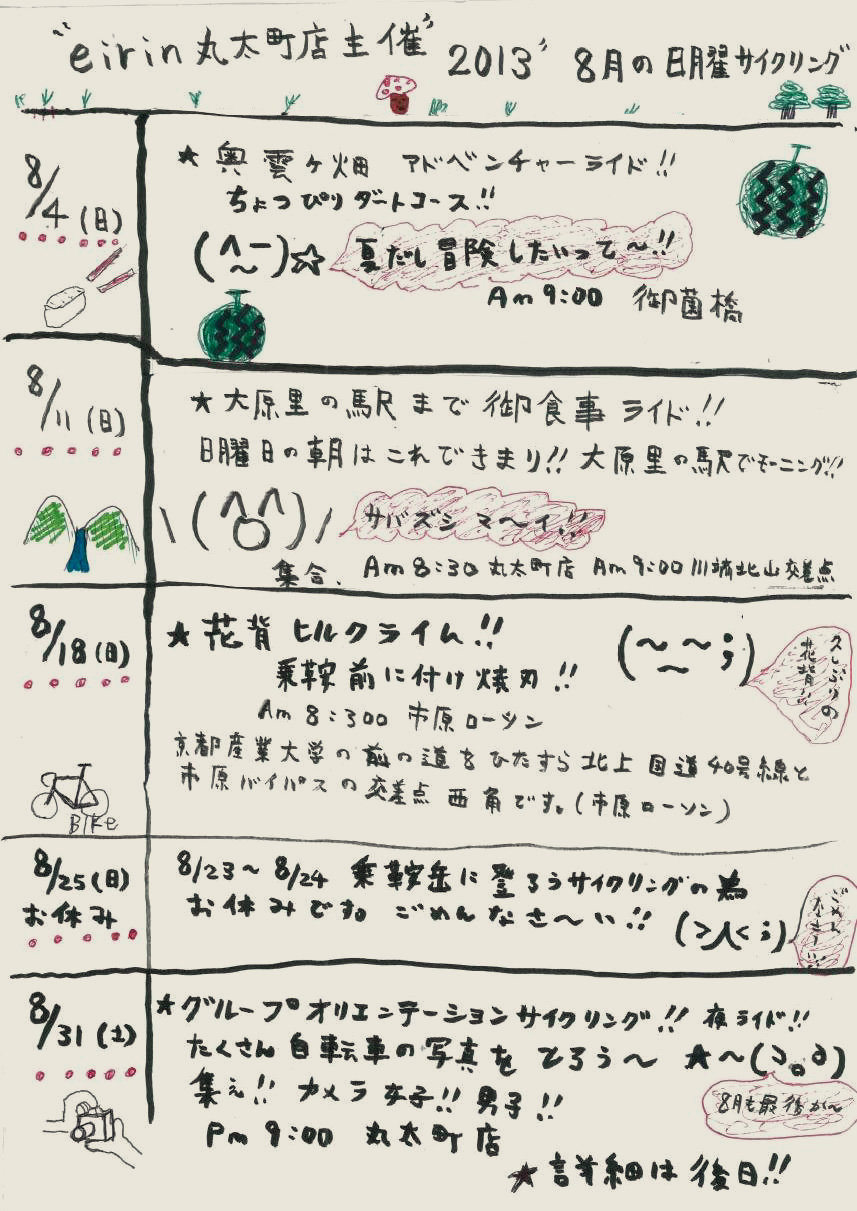 "eirin丸太町店主催" 2013' 8月の日曜サイクリング
8/4(日)
★奥雲ヶ畑 アドベンチャーライド!!
ちょっぴりダートコース!!
(^ー)☆ 夏だし冒険したいって〜!!
Am9:00 御薗橋
8/11(日)
★大原里の駅まで御食事ライド!!
日曜日の朝はこれできまり!!大原里の駅でモーニング!!
\(^O^)/ サバズシマ〜イ!!
集合、Am8:30丸太町店 Am9:00川端北山交差点
8/18(日)
★花背ヒルクライム!!
乗鞍前に付け焼刃!!
(〜〜;) 久しぶりの花背!!
Am8:300 市原ローソン
京都産業大学の前の道をひたすら北上 国道40号線と
市原バイパスの交差点西角です。(市原ローソン)
BIKe
8/25(日)
お休み
8/23〜8/24 乗鞍岳に登ろうサイクリングの為
お休みです。ごめんなさ〜い!! (>人<;)
ごめんなさ〜い!!
8/31(土)
★グループオリエンテーションサイクリング!! 夜ライド!!
たくさん自転車の写真をとろう〜 ☆〜(ゝ。∂)
集え!!カメラ女子!!男子!!
8月も最後か〜
Pm9:00 丸太町店
★詳細は後日!!